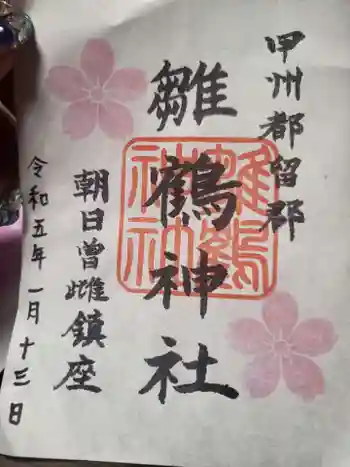 甲州都留郡
雛鶴神社
朝日曽雌鎮座
令和五年一月十三日